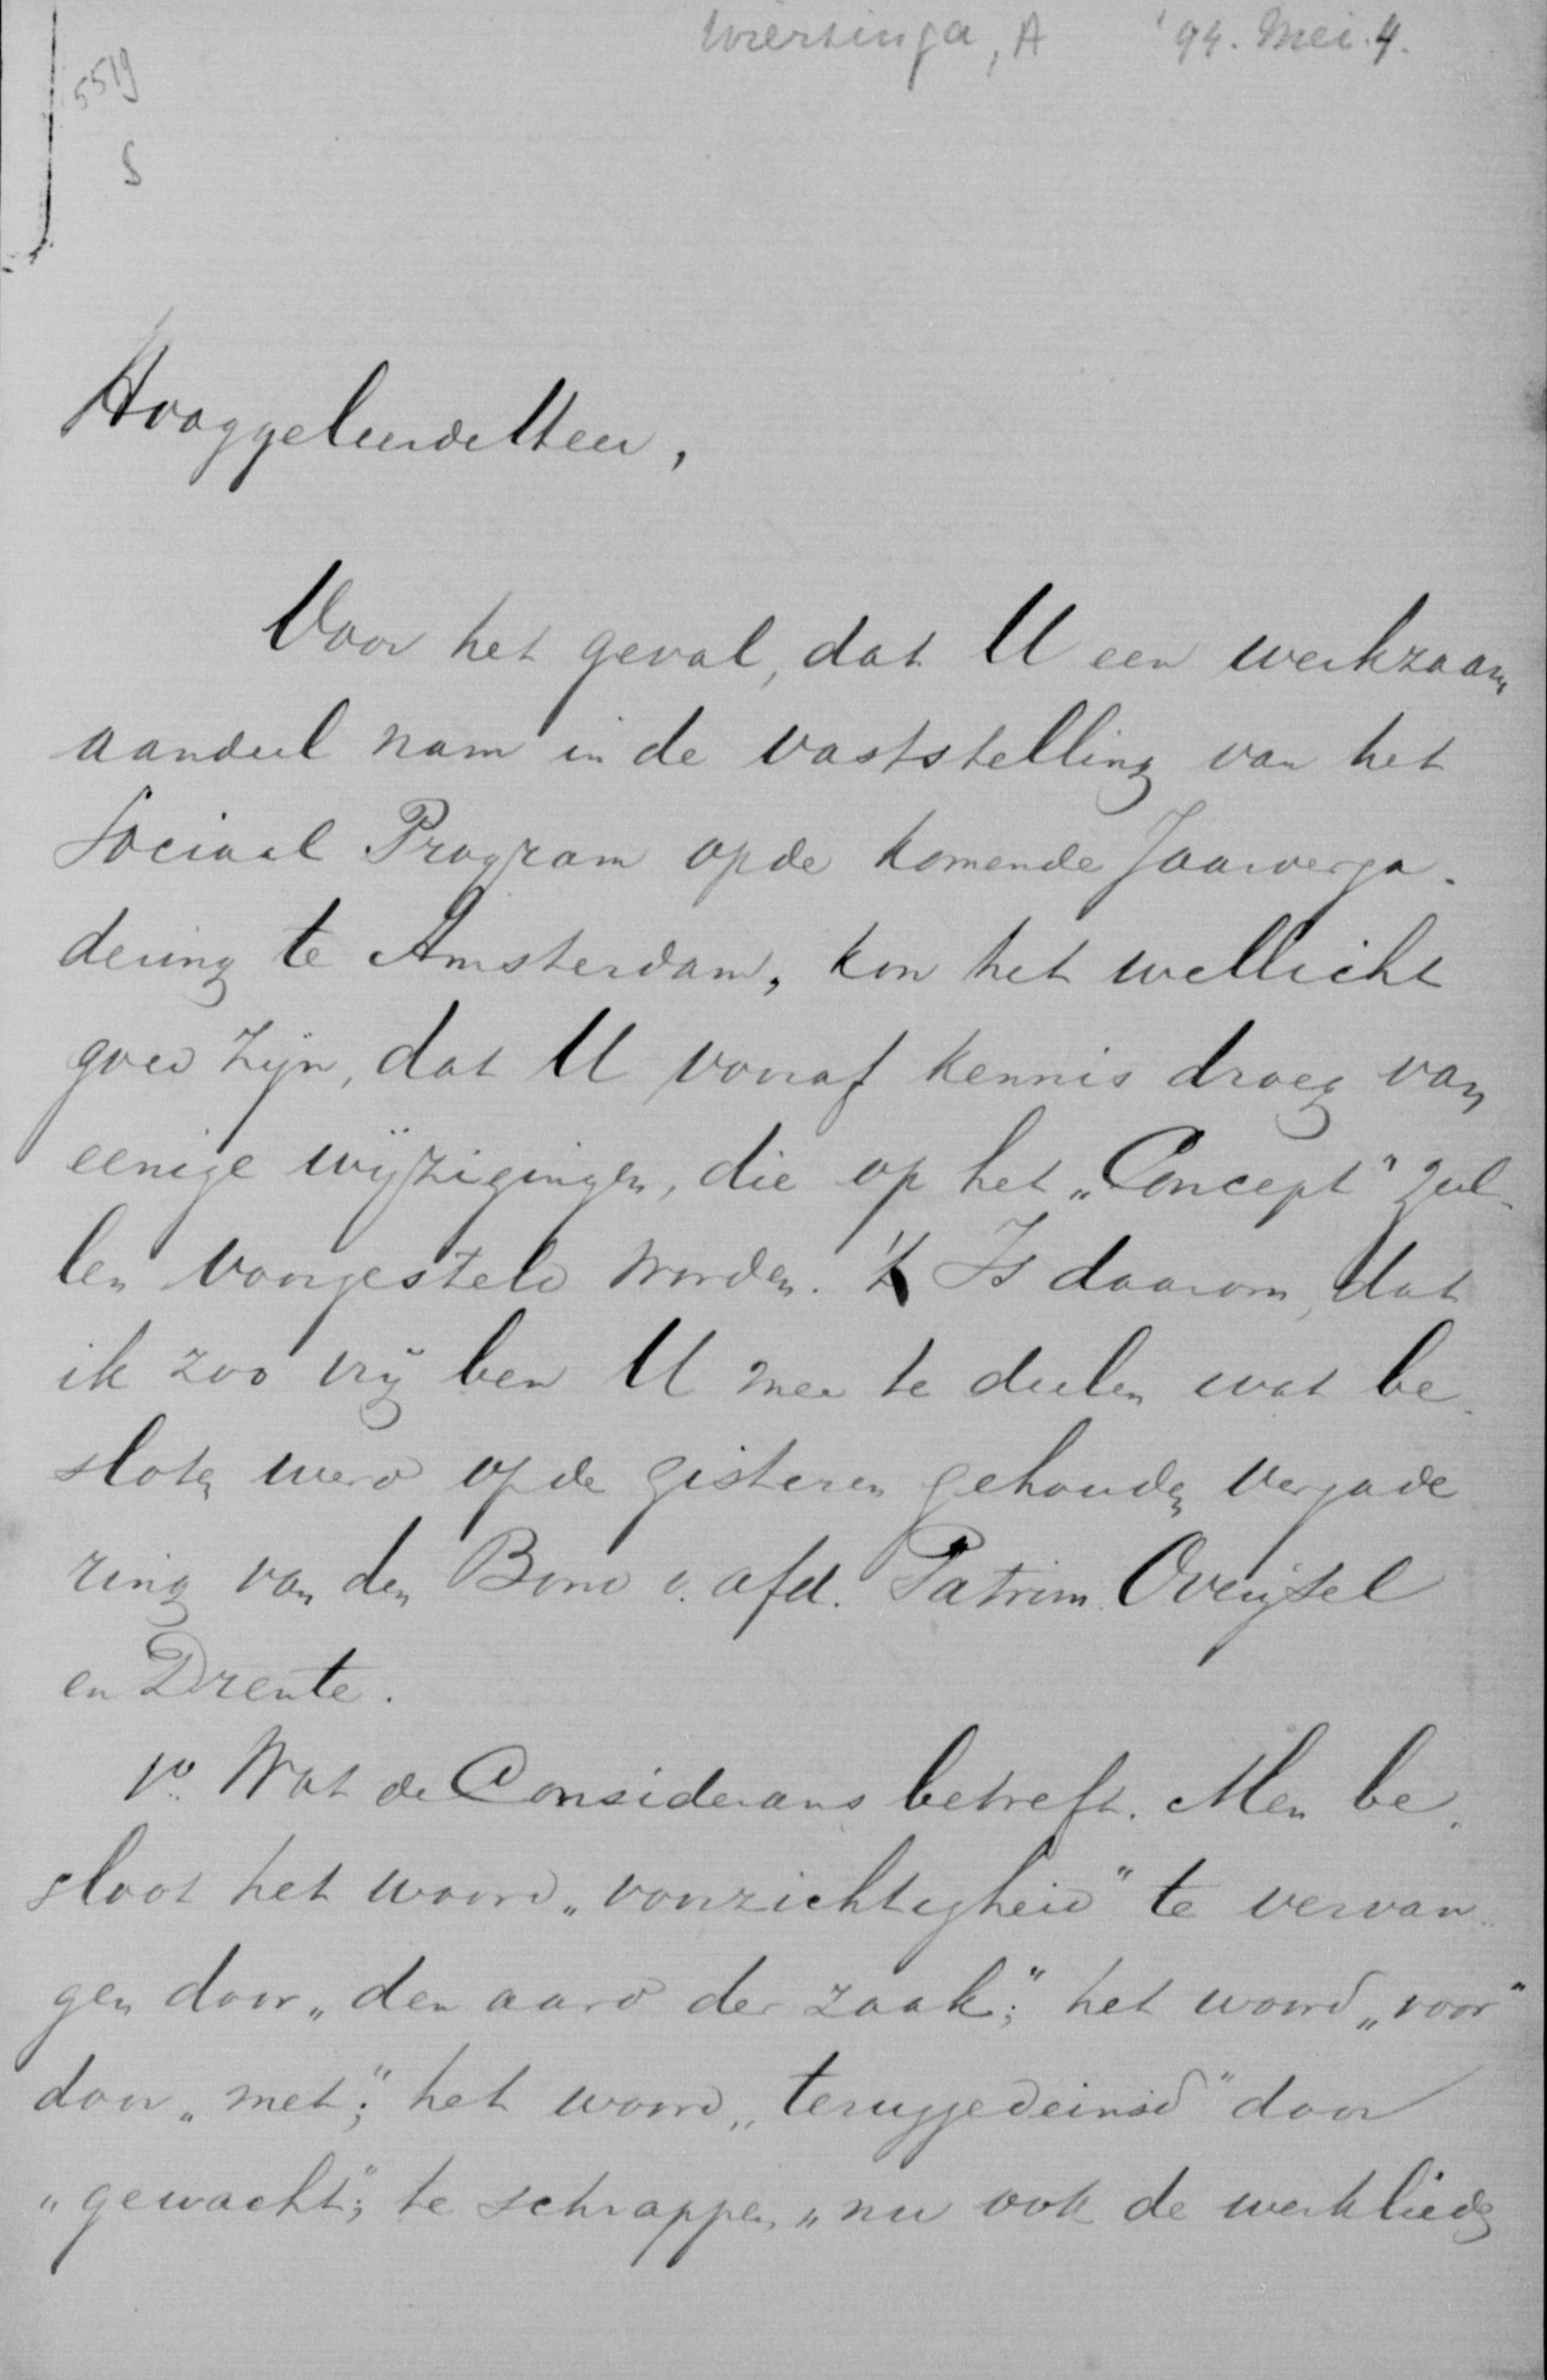 Wiersinga, A '94. Mei. 4.
5519
S
Hooggeleerde Heer,
Voor het geval, dat U een werkzaam
aandeel nam in de vaststelling van het
Sociaal Program op de komende Jaarverga-
dering te Amsterdam, kon het wellicht
goed zijn, dat U vooraf kennis droeg van
eenige wijzigingen, die op het „Concept" zul-
len voorgesteld worden. 't Is daarom, dat
ik zoo vrij ben U mee te deelen wat be-
sloten werd op de gisteren gehouden vergade
ring van den Bond v. afd. Patrim. Overijsel
en Drente.
1o. Wat de Considerans betreft. Men be-
sloot het woord „voorzichtigheid" te vervan-
gen door „den aard der zaak;" het woord „voor"
door „met;" het woord „teruggedeinsd" door
„gewacht"; te schrappen „nu ook de werklieden